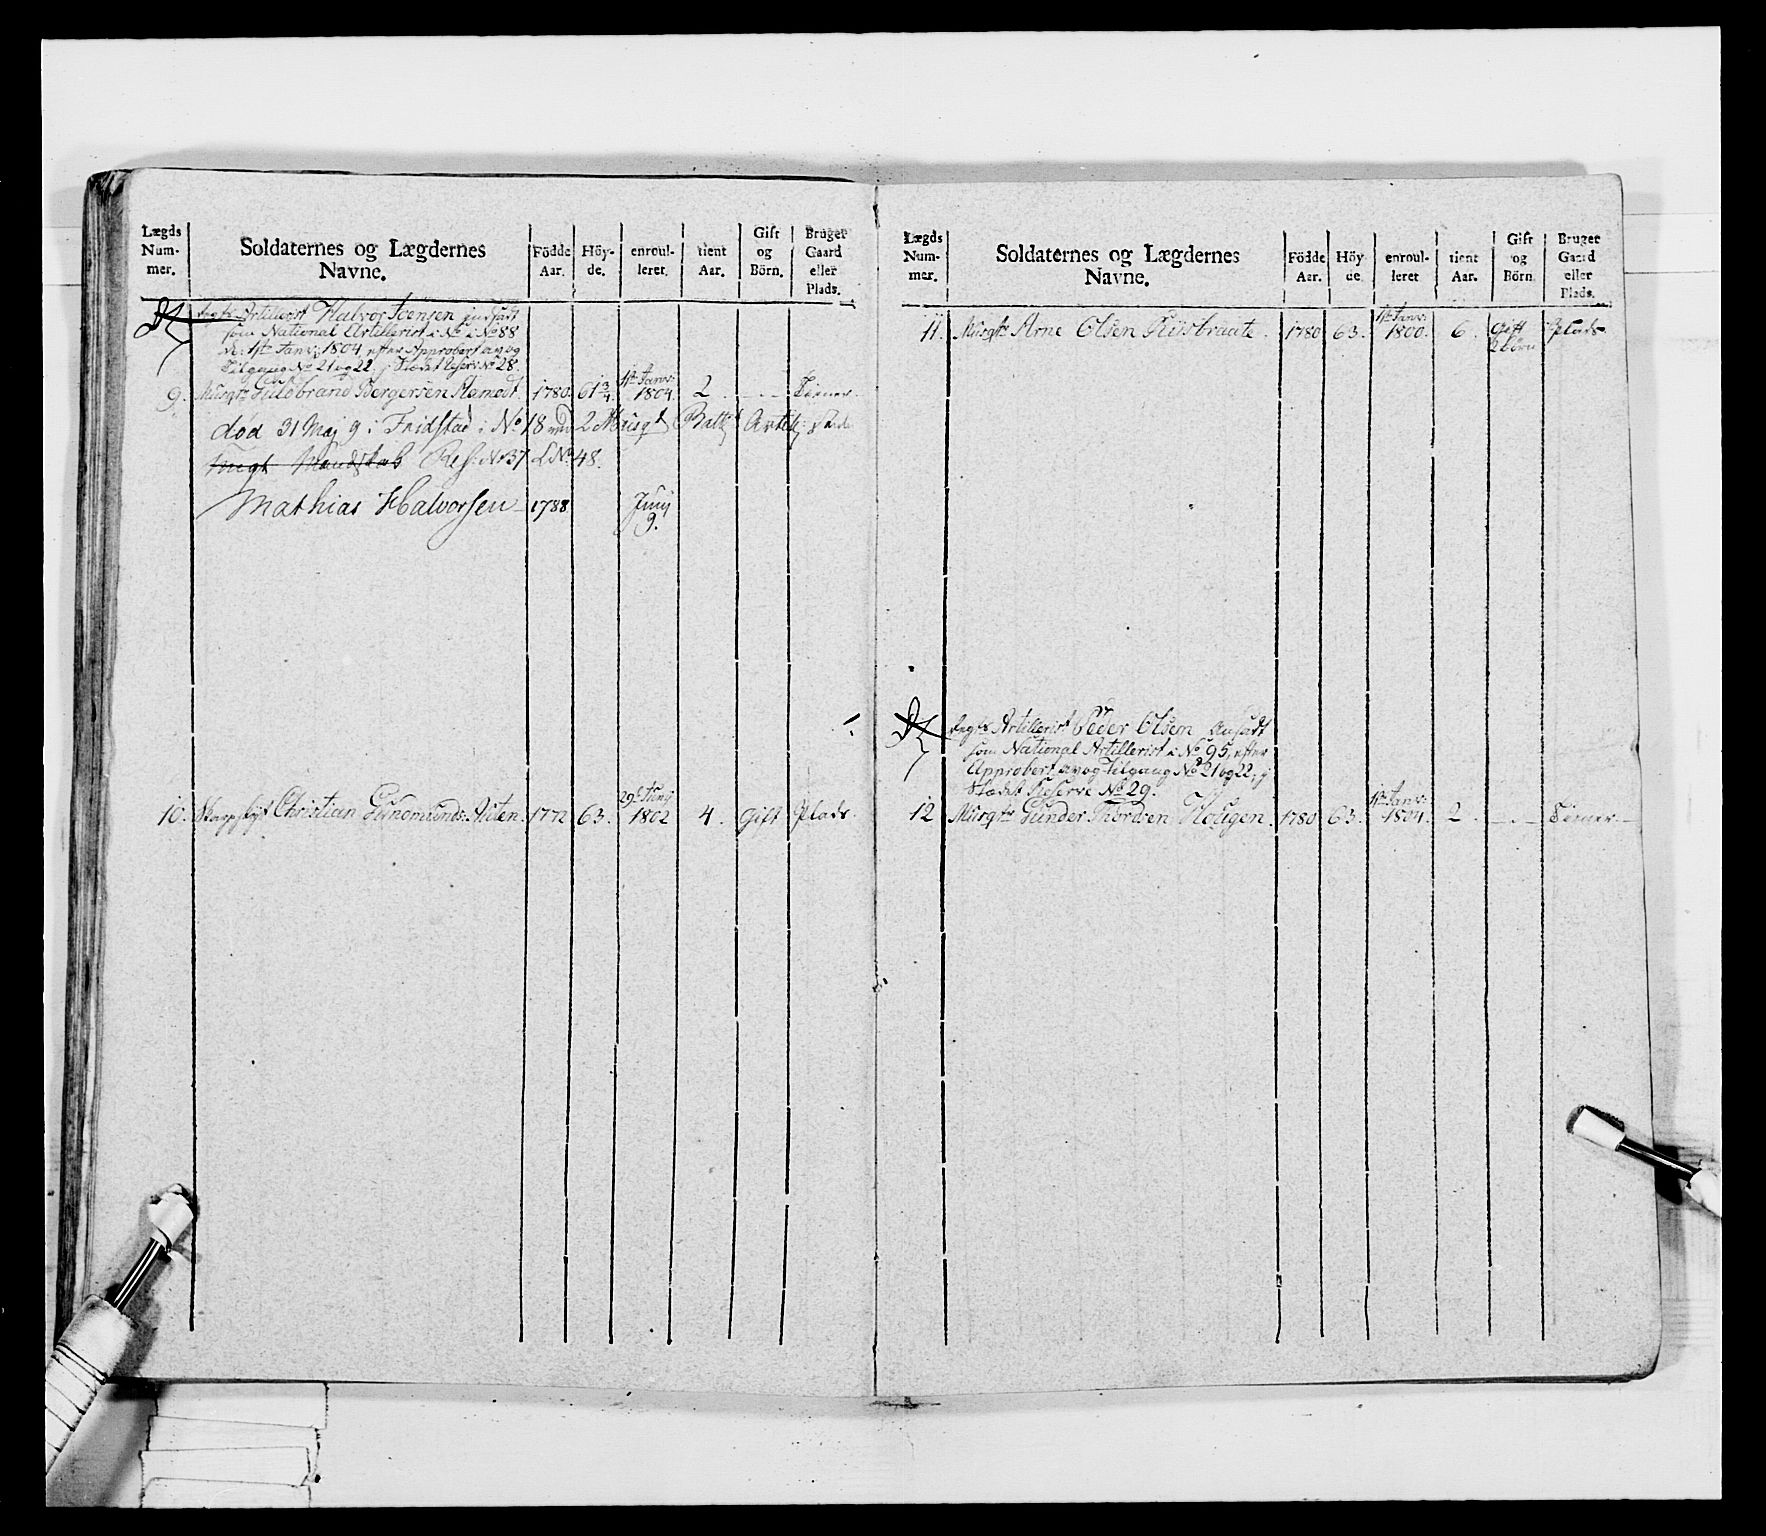 Lægds Num- mer.
Soldaternes og Lægdernes Navne.
Födde Aar.
Höy- de.
enroul- leret.
tient Aar.
Gift og Börn.
Bruger Gaard eller Plads.
Artillerist Halvor Joensen indsadt
som National Artillerist i No 88
1ste Janv: 1804 efter Approbert av og
Tilgang No 21 og 22. j Stædet Reserv No 28.
9. Musqtr Hildebrand Bergersen Ramodt. 1780. 61 3/4. 1ste Janv: 1804. 2. - . - Tiener.
død 31 Maj 9 i Fridstad i No 18 ved 2 Musqt Batl:
Mandskab Res: No 37 L No 48.
Mathias Halvorsen 1788 Junij 9.
10. Christian Gundmunds: 1772 63. 29de Junij 1802 4. Gift Plads.
Lægds Num- mer.
Soldaternes og Lægdernes Navne.
Födde Aar.
Höy de.
enroul- leret
tient Aar.
Gift og Börn.
Bruger Gaard eller Plads.
11. Musqtr Arne Olsen 1780 63. 1ste Janv: 1800. 6. Gift 2 börn Plads.
Regts Artillerist Peder Olsen Ansadt
som National Artillerist i No 95, efter
Approbert av og Tilgang No 21 og 22, j
Stædet Reserve No 29.
12 Musqtr Gunder Thordsen Haugen. 1780 63. 1ste Janv: 1804. 2. - . - Tiener.